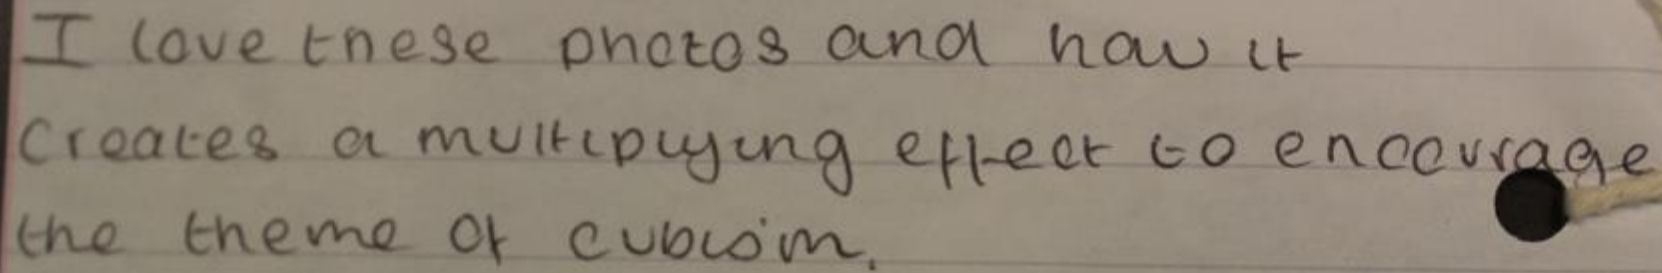 I love these photos and how it
creates a multiplying effect to encourage
the theme of cubism.